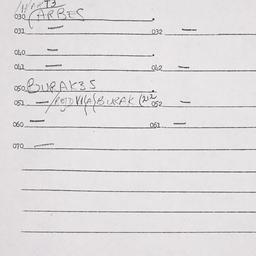 030 (ARBES
031 — 032 —
040 —
041 — 042 —
050 BURAK35
051 — BURAK 052 —
060 — 061 —
070 —